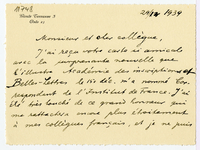 11748
Oslo
1939
Monsieur et cher collègue,
J'ai reçu votre carte si amicale
avec la surprenante nouvelle que
l'illustre Académie des inscriptions et
Belles-Lettres le 15 déc. m'a nommé Cor-
respondant de l'Institut de France. J'ai
été très touché de ce grand honneur qui
me rattachera plus étroitement
à mes collègues français, et je ne puis